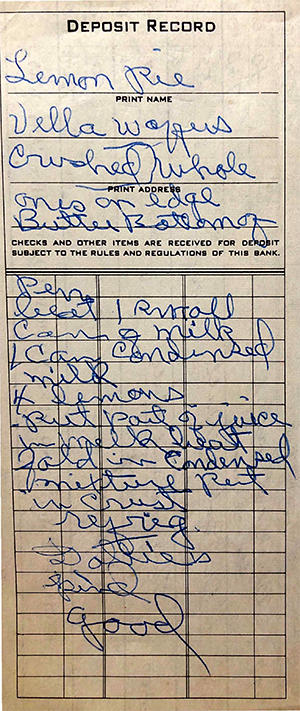 DEPOSIT RECORD
Lemon Pie
PRINT NAME
Vella Woffers
Crushed, whole
PRINT ADDRESS
ones on edge
Butter Bottom of
CHECKS AND OTHER ITEMS ARE RECEIVED FOR DEPOSIT
SUBJECT TO THE RULES AND REGULATIONS OF THIS BANK.
Pen
beat 1 small
Can g milk
1 Can Condensed
milk
4 lemons
Put Part of juice
in milk beat
fold in Condensed
mixture Put
in Crust
refrig
kind
good